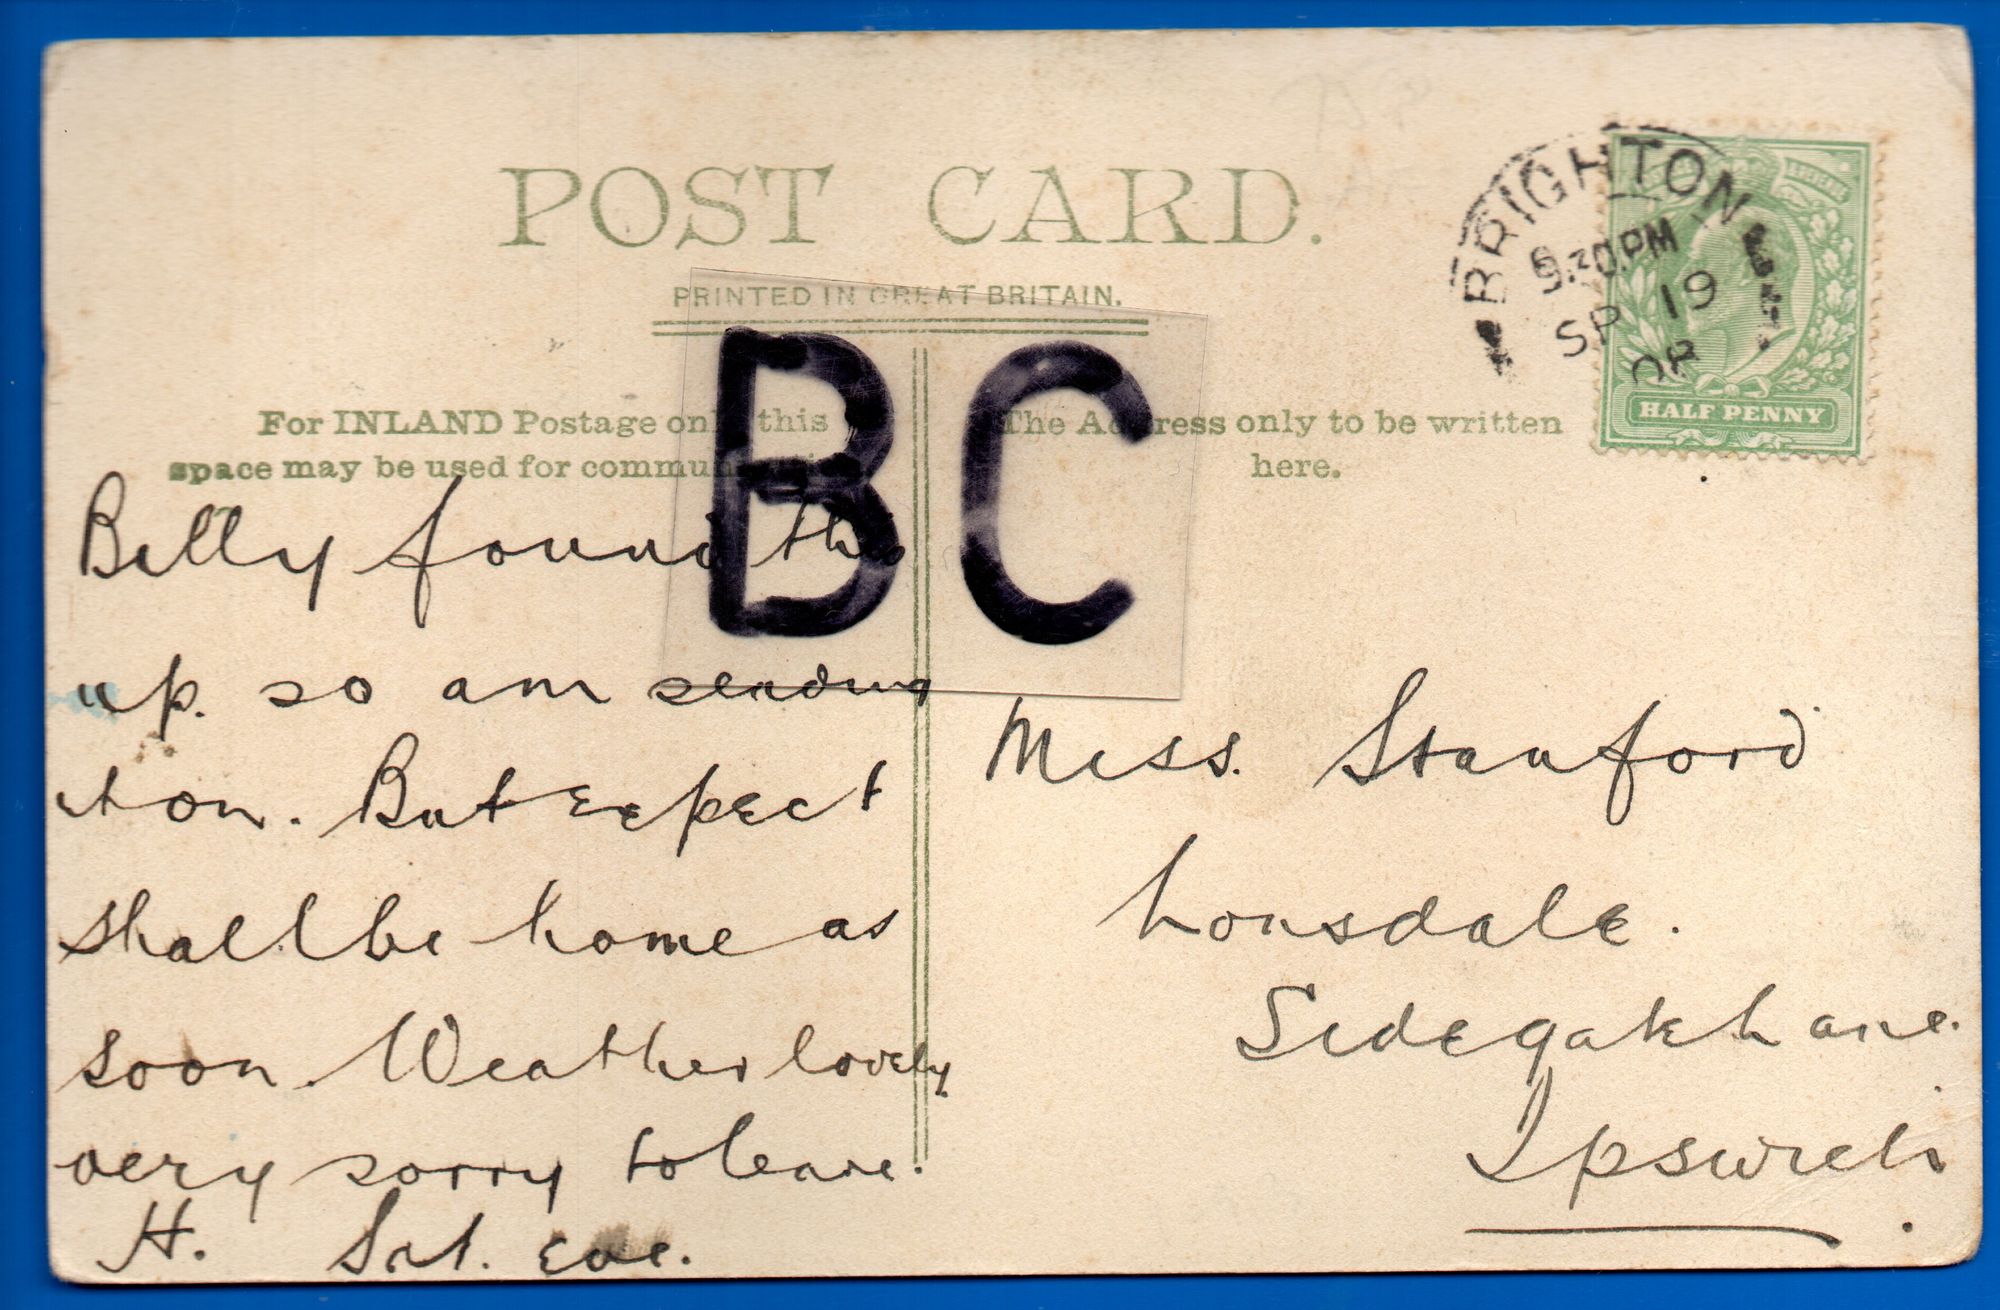 POST CARD.
PRINTED IN GREAT BRITAIN.
BC
For INLAND Postage only this
space may be used for communication
The Address only to be written
here.
BRIGHTON
9.30.PM
SP 19
08
HALF PENNY
Billy found this
up. so am sending
it on. But expect
shall be home as
soon. Weather lovely
very sorry to leave.
H. Sat. eve.
Miss. Stanford
Lonsdale.
Sidegate Lane.
Ipswich